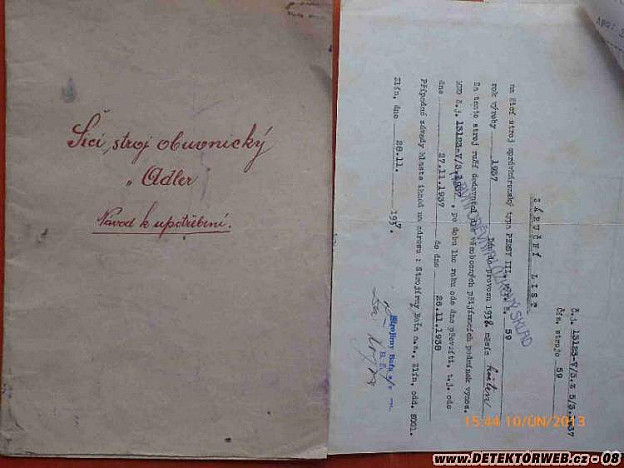 Šicí stroj obuvnický
„Adler
Návod k upotřebení.
ZÁRUČNÍ LIST
č.j. 13123-V/3.z 5/3.1937
čís. stroje 59
na šicí stroj správkárenský typu PEBSY III. 59
rok výroby 1937 dán do provozu 1938 měsíc květen
Na tento stroj ručí dodavatel dle všeobecných přijímacích podmínek vynos.
MNO č.j. 13123-V/3.1937. po dobu 1ho roku ode dne převzetí, t.j. ode
dne 27.11.1937 do dne 26.11.1938
Případné závady hlaste ihned na adresu : Strojírny Baťa a.s., Zlín, odd.
Zlín, dne 28.11. 1937
Strojírny Baťa
SKLAD
15:44 10/ÚN/2013
www.DETEKTORWEB.cz - 08